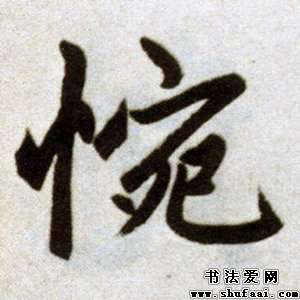 惋
书法爱网
www.shufaai.com